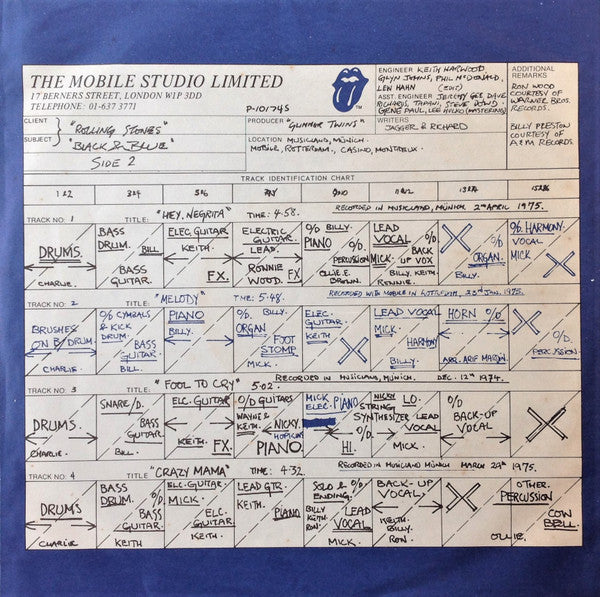 THE MOBILE STUDIO LIMITED
17 BERNERS STREET, LONDON W1P 3DD
TELEPHONE: 01-637 3771
P-10174S
ENGINEER KEITH HARWOOD,
GLYN JOHNS, PHIL McDONALD,
LEW HAHN
ASST. ENGINEER JEREMY GEE, DAVE
RICHARDS, TAPANI, STEVE DOWD
GENE PAUL, LEE HULKO (MASTERING)
ADDITIONAL
REMARKS
RON WOOD
COURTESY OF
WARNER BROS.
RECORDS.
BILLY PRESTON
COURTESY OF
A&M RECORDS.
CLIENT "ROLLING STONES"
SUBJECT "BLACK & BLUE"
SIDE 2
PRODUCER "GLIMMER TWINS"
WRITERS
JAGGER & RICHARD
LOCATION MUSICLAND, MUNICH.
MOBILE, ROTTERDAM, CASINO, MONTREUX.
TRACK IDENTIFICATION CHART
1 & 2 3 & 4 5 & 6 7 & 8 9 & 10 11 & 12 13 & 14 15 & 16
TRACK NO: 1 TITLE: "HEY, NEGRITA" TIME: 4·58. RECORDED IN MUSICLAND, MUNICH 2nd APRIL 1975.
DRUMS.
CHARLIE.
BASS
DRUM. BILL
BASS
GUITAR.
ELEC. GUITAR
KEITH.
FX.
ELECTRIC
GUITAR.
LEAD.
RONNIE
WOOD. FX
O/D BILLY.
PIANO
O/D
PERCUSSION
OLLIE E.
BROWN.
LEAD
VOCAL
MICK.
O/D
BACK
UP VOX
BILLY. KEITH.
RONNIE.
O/D
ORGAN.
BILLY.
O/D. HARMONY.
VOCAL
MICK
TRACK NO: 2 TITLE: "MELODY" TIME: 5·48. RECORDED WITH MOBILE IN ROTTERDAM, 23rd JAN. 1975.
BRUSHES
ON B/DRUM
CHARLIE.
O/D CYMBALS
& KICK
DRUM.
BASS
GUITAR.
BILL
PIANO
BILLY.
O/D. BILLY.
ORGAN
FOOT
STOMP
MICK.
ELEC.
GUITAR
KEITH
LEAD VOCAL
MICK.
HARMONY
BILLY.
HORN O/D
ARR. ARIF MARDIN.
O/D.
PERCUSSION.
TRACK NO: 3 TITLE: "FOOL TO CRY" 5·02. RECORDED IN MUSICLAND, MUNICH. DEC. 12th 1974.
DRUMS.
CHARLIE.
SNARE/D.
BASS
GUITAR
BILL.
ELC. GUITAR
KEITH.
FX.
O/D GUITARS
WAYNE &
KEITH.
NICKY
HOPKINS
PIANO.
MICK
ELEC. PIANO
O/D.
HI.
NICKY
STRINGS
SYNTHESIZER
LO.
LEAD
VOCAL
MICK.
O/D
BACK-UP
VOCAL
TRACK NO: 4 TITLE: "CRAZY MAMA" TIME: 4·32. RECORDED IN MUSICLAND MUNICH MARCH 29th 1975.
DRUMS
CHARLIE
BASS
DRUM. O/D
BASS
GUITAR.
KEITH
ELC. GUITAR
MICK.
ELC.
GUITAR
KEITH.
LEAD GTR.
KEITH.
PIANO
SOLO &
ENDING. O/D
BILLY
KEITH
RON.
LEAD
VOCAL
MICK.
BACK-UP
VOCAL.
KEITH.
BILLY.
RON.
OTHER.
PERCUSSION
COW
BELL.
OLLIE.